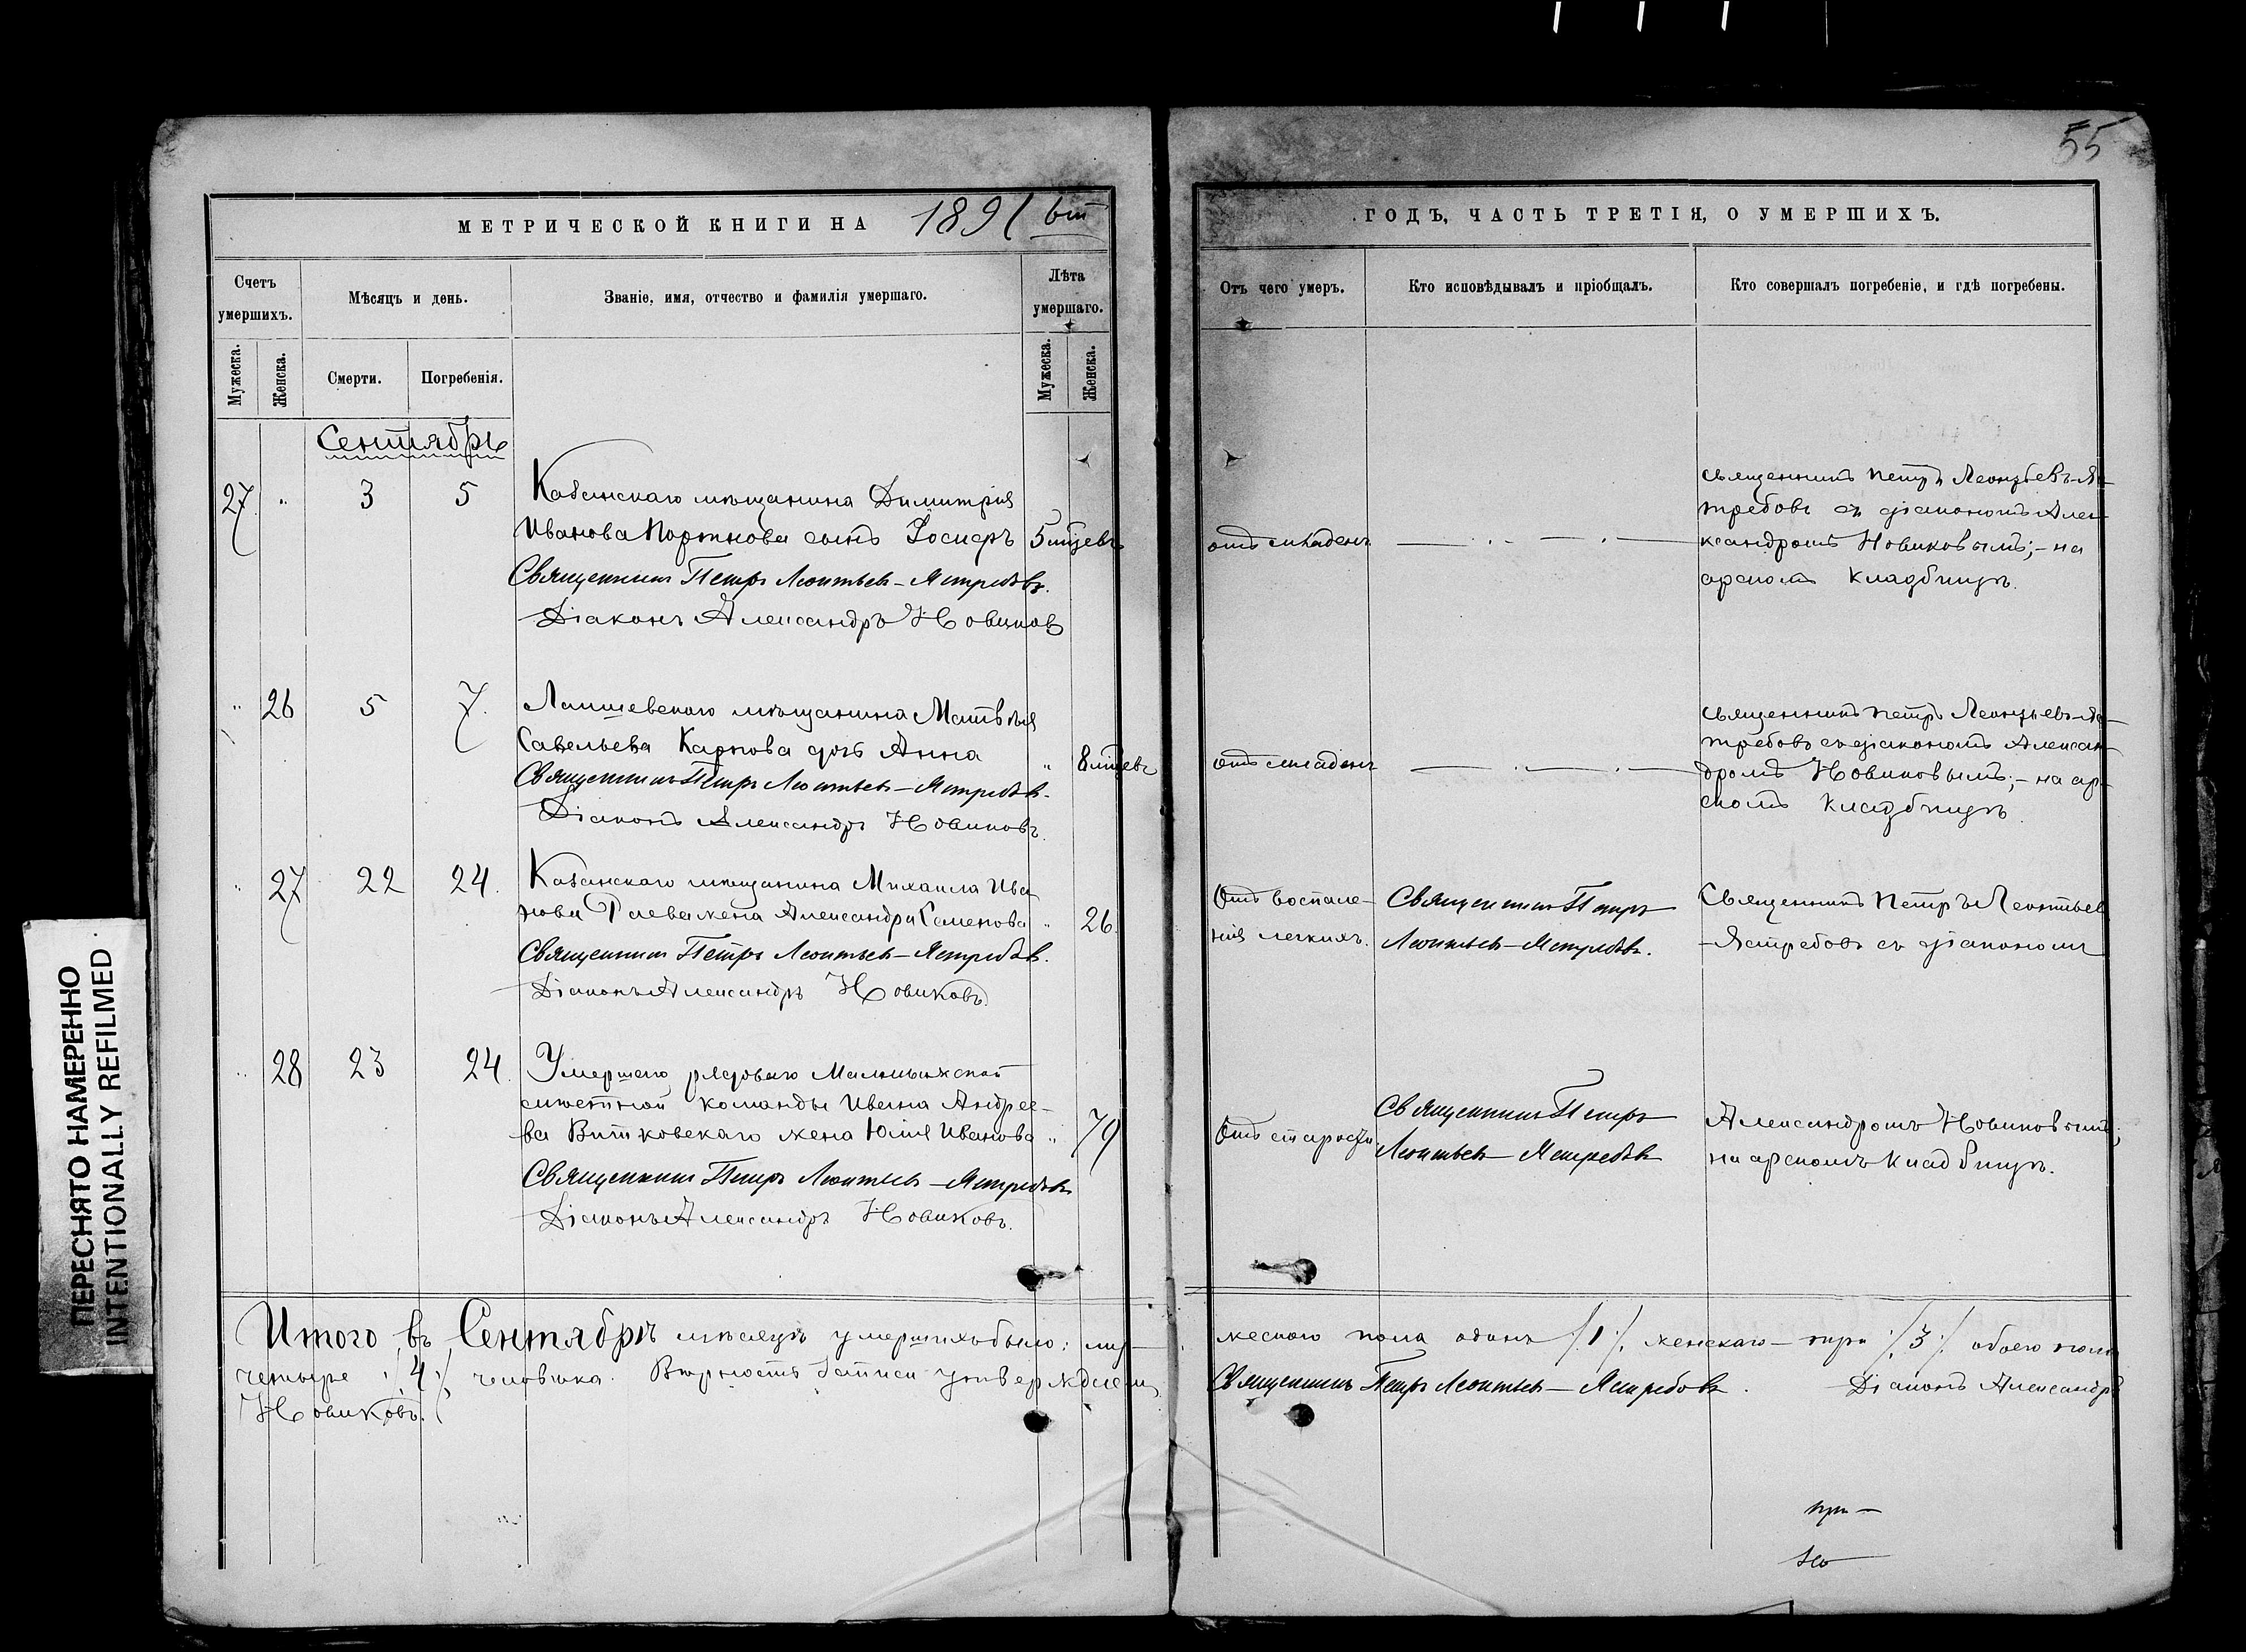 55
МЕТРИЧЕСКОЙ КНИГИ НА 1891 ый
Счетъ умершихъ.
Мѣсяцъ и день.
Званіе, имя, отчество и фамилія умершаго.
Лѣта умершаго.
Мужеска.
Женска.
Смерти.
Погребенія.
Мужеска.
Женска.
Сентябрь
27 " 3 5
Казанскаго мѣщанина Димитрія
Иванова Портнова сынъ Іосифъ 5 мцевъ
Священникъ Петръ Леонтьев-Ястребовъ.
Діаконъ Александръ Новиковъ
" 26 5 7.
Лаишевскаго мѣщанина Матвѣя
Савельева Карпова дочь Анна " 8 мцевъ
Священникъ Петръ Леонтьев-Ястребовъ.
Діаконъ Александръ Новиковъ.
" 27 22 24.
Казанскаго мѣщанина Михаила Ива
нова жена Александра Семенова " 26.
Священникъ Петръ Леонтьев-Ястребовъ.
Діаконъ Александръ Новиковъ.
" 28 23 24.
Умершаго рядоваго Малмыжской
командын Ивана Андрее-
ва Витковскаго жена Юлія Иванова " 79
Священникъ Петръ Леонтьев-Ястребовъ
Діаконъ Александръ Новиковъ.
Итого въ Сентябрѣ мѣсяцѣ умершихъ было: му-
четыре /4/ человѣка. Вѣрность записи утверждаемъ
Новиковъ.
ГОДЪ, ЧАСТЬ ТРЕТІЯ, О УМЕРШИХЪ.
Отъ чего умеръ.
Кто исповѣдывалъ и пріобщалъ.
Кто совершалъ погребеніе, и гдѣ погребены.
отъ младен
Священникъ Петръ Леонтьевъ-Яс-
требовъ съ діакономъ Алек-
ксандромъ Новиковымъ;-на
арскомъ кладбищѣ.
отъ младен
Священникъ Петръ Леонтьевъ-Яс-
требовъ съ діакономъ Алексан-
дромъ Новиковымъ;-на ар-
скомъ кладбищѣ.
Отъ воспале-
нія легкихъ.
Священникъ Петръ
Леонтьев-Ястребовъ.
Священникъ Петръ Леонтьев
-Ястребовъ съ діакономъ
Отъ старости
Священникъ Петръ
Леонтьев-Ястребовъ
Александромъ Новиковымъ;
на арскомъ кладбищѣ.
жескаго пола одинъ /1/, женскаго-три /3/ обоего пола
Священникъ Петръ Леонтьев-Ястребовъ. Діаконъ Александръ
ПЕРЕСНЯТО НАМЕРЕННО
INTENTIONALLY REFILMED